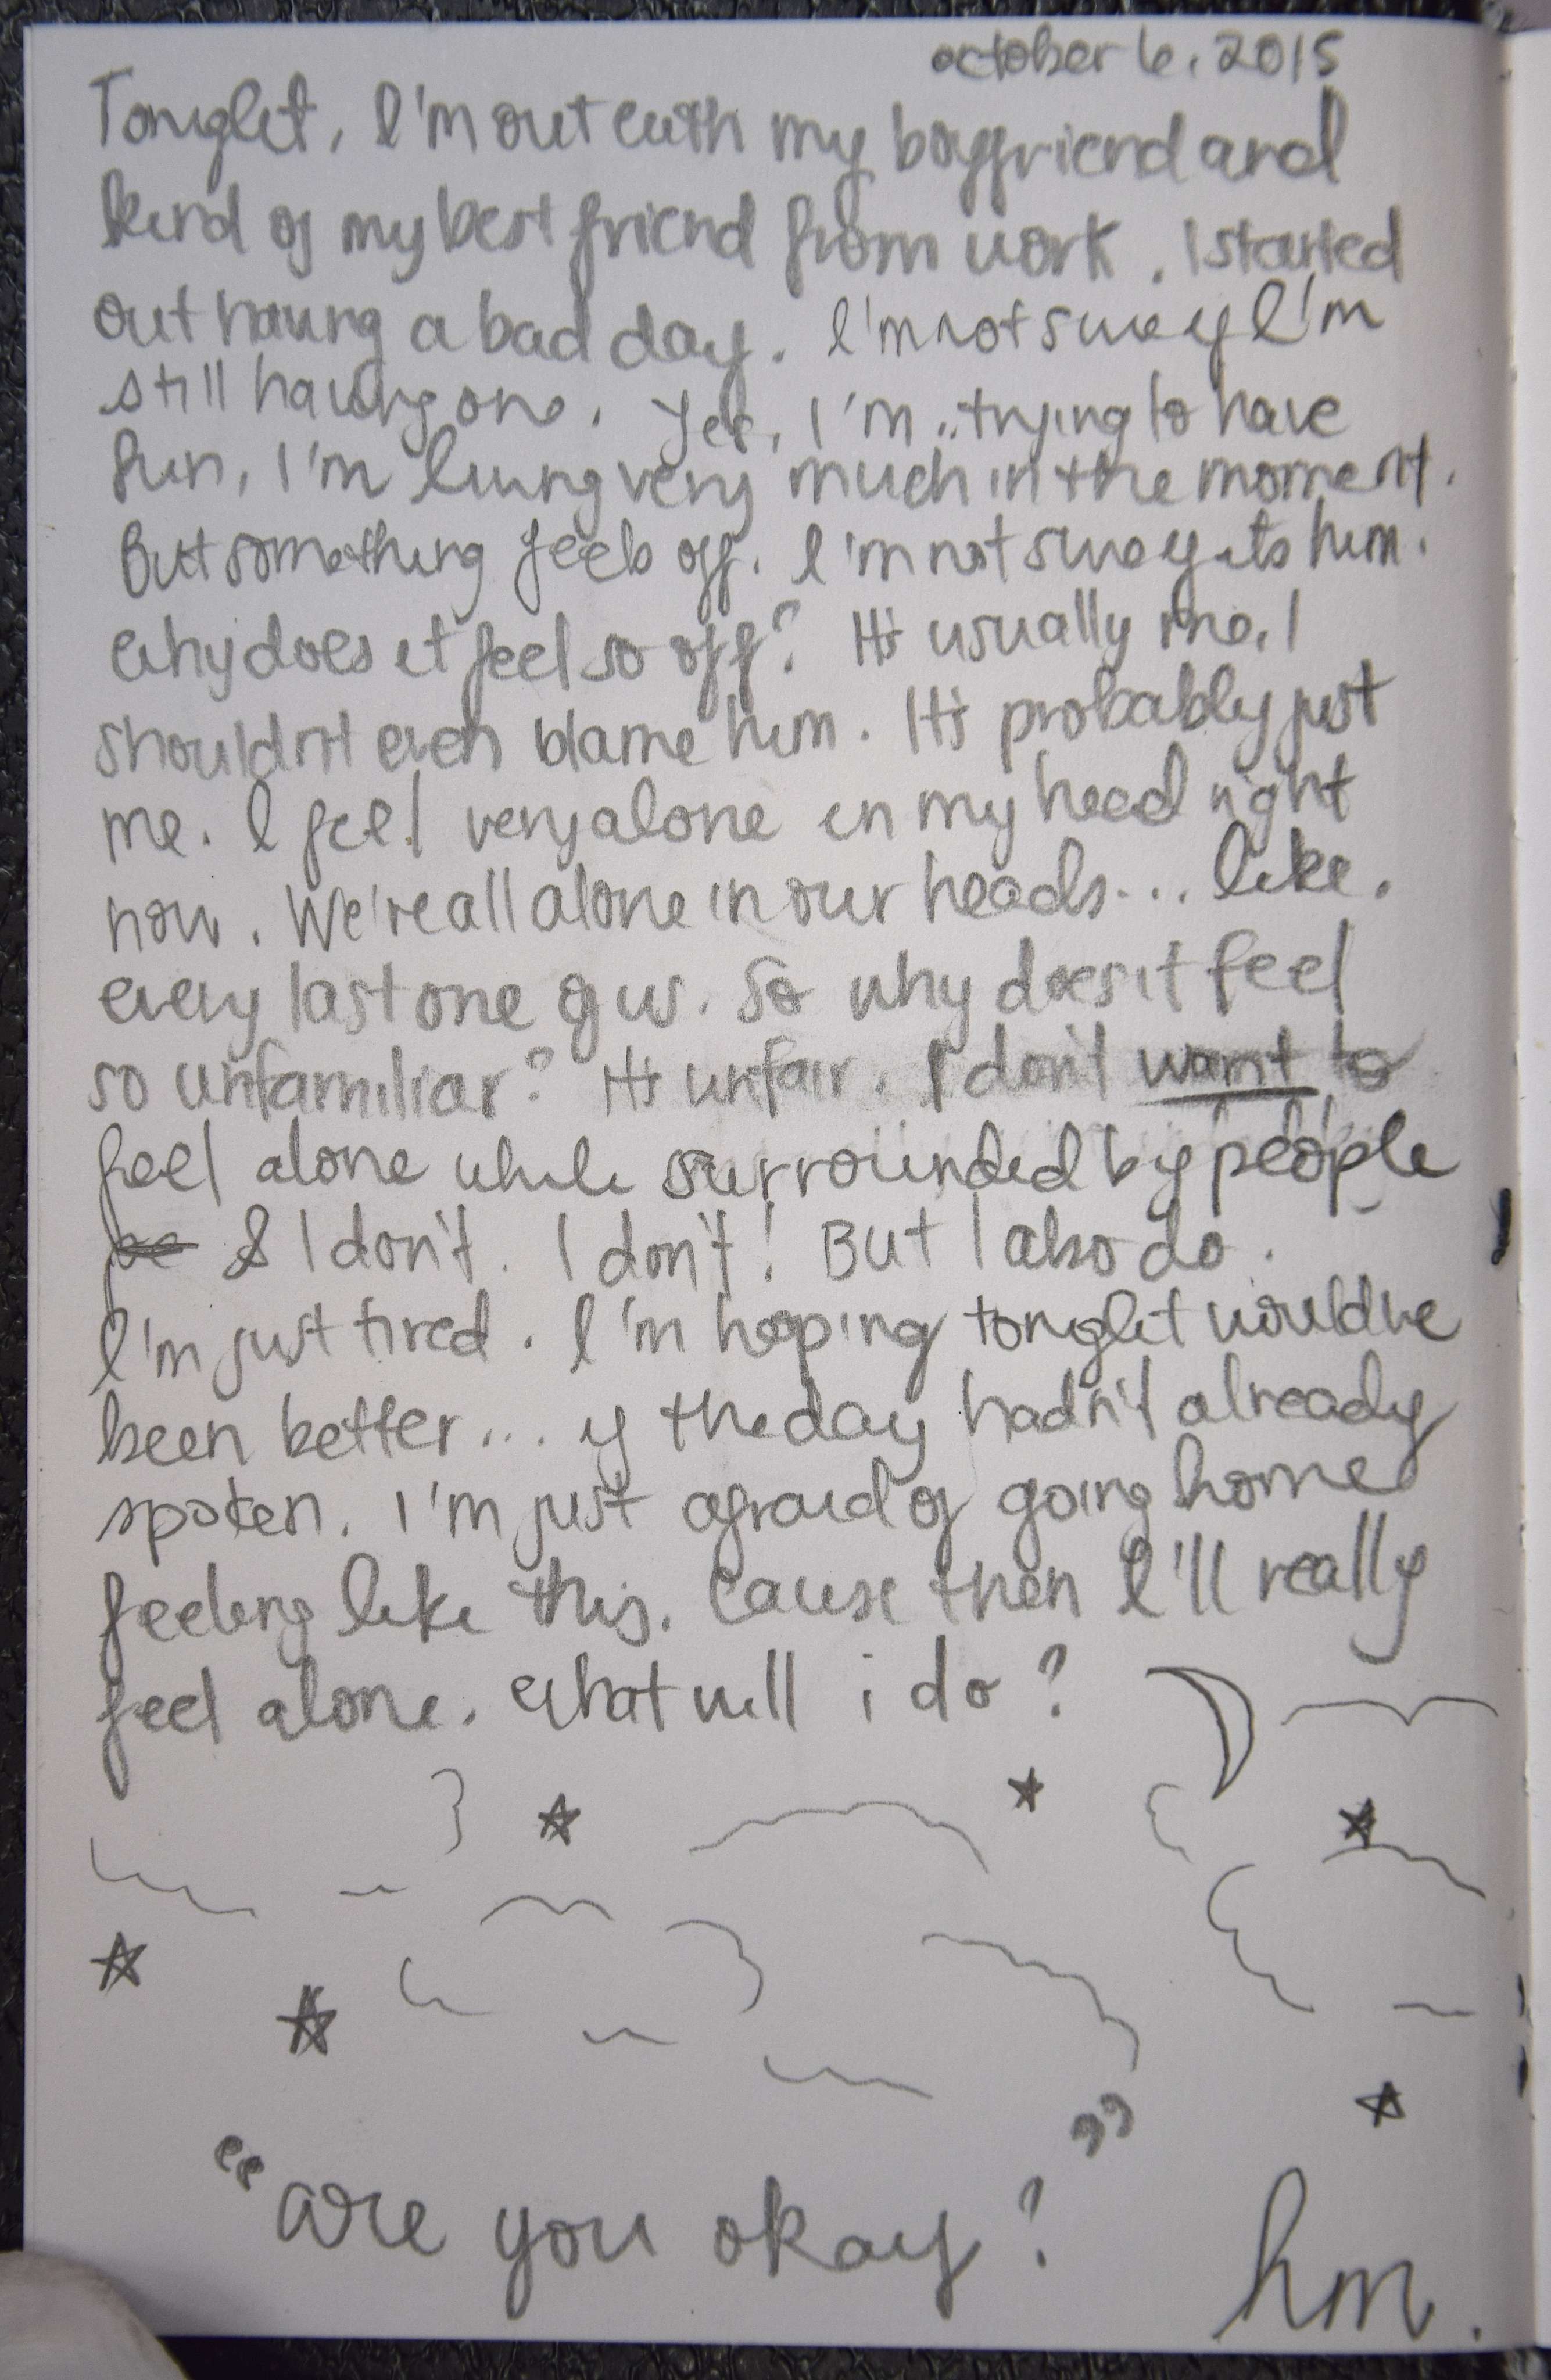 october 6, 2015
Tonight, I'm out with my boyfriend and
kind of my best friend from work. I started
out having a bad day. I'm not sure if I'm
still having one. Yes, I'm.. trying to have
fun, I'm living very much in the moment.
But something feels off. I'm not sure if its him.
Why does it feel so off? It's usually me. I
shouldn't even blame him. It's probably just
me. I feel very alone in my head right
now. We're all alone in our heads... like.
every last one of us. So why does it feel
so unfamiliar? It's unfair. I don't want to
feel alone while surrounded by people
& I don't. I don't! But I also do.
I'm just tired. I'm hoping tonight would've
been better... if the day hadn't already
spoken. I'm just afraid of going home
feeling like this. Cause then I'll really
feel alone. What will i do?
"are you okay?"
hm.